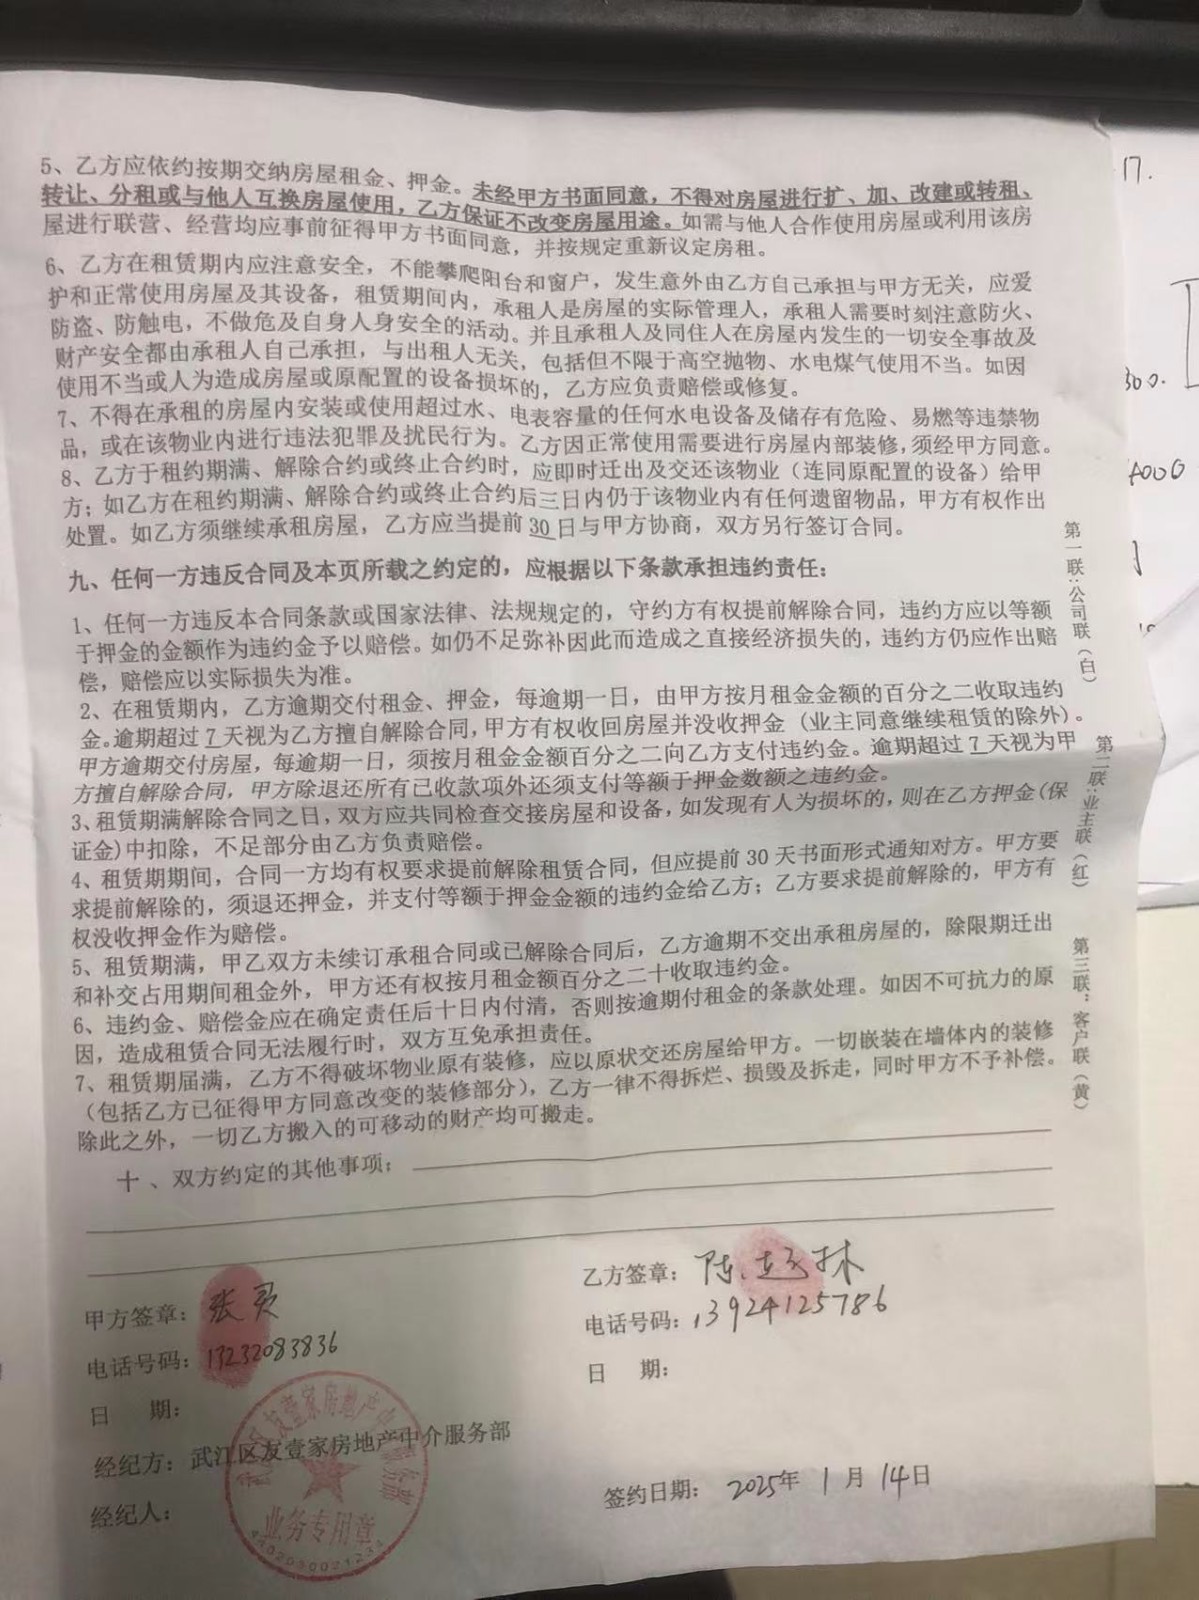 5、乙方应依约按期交纳房屋租金、押金。未经甲方书面同意，不得对房屋进行扩、加、改建或转租、
转让、分租或与他人互换房屋使用，乙方保证不改变房屋用途。如需与他人合作使用房屋或利用该房
屋进行联营、经营均应事前征得甲方书面同意，并按规定重新议定房租。
6、乙方在租赁期内应注意安全，不能攀爬阳台和窗户，发生意外由乙方自己承担与甲方无关，应爱
护和正常使用房屋及其设备，租赁期间内，承租人是房屋的实际管理人，承租人需要时刻注意防火、
防盗、防触电，不做危及自身人身安全的活动。并且承租人及同住人在房屋内发生的一切安全事故及
财产安全都由承租人自己承担，与出租人无关，包括但不限于高空抛物、水电煤气使用不当。如因
使用不当或人为造成房屋或原配置的设备损坏的，乙方应负责赔偿或修复。
7、不得在承租的房屋内安装或使用超过水、电表容量的任何水电设备及储存有危险、易燃等违禁物
品，或在该物业内进行违法犯罪及扰民行为。乙方因正常使用需要进行房屋内部装修，须经甲方同意。
8、乙方于租约期满、解除合约或终止合约时，应即时迁出及交还该物业（连同原配置的设备）给甲
方；如乙方在租约期满、解除合约或终止合约后三日内仍于该物业内有任何遗留物品，甲方有权作出
处置。如乙方须继续承租房屋，乙方应当提前30日与甲方协商，双方另行签订合同。
九、任何一方违反合同及本页所载之约定的，应根据以下条款承担违约责任：
1、任何一方违反本合同条款或国家法律、法规规定的，守约方有权提前解除合同，违约方应以等额
于押金的金额作为违约金予以赔偿。如仍不足弥补因此而造成之直接经济损失的，违约方仍应作出赔
偿，赔偿应以实际损失为准。
2、在租赁期内，乙方逾期交付租金、押金，每逾期一日，由甲方按月租金金额的百分之二收取违约
金。逾期超过7天视为乙方擅自解除合同，甲方有权收回房屋并没收押金（业主同意继续租赁的除外）。
甲方逾期交付房屋，每逾期一日，须按月租金金额百分之二向乙方支付违约金。逾期超过7天视为甲
方擅自解除合同，甲方除退还所有已收款项外还须支付等额于押金数额之违约金。
3、租赁期满解除合同之日，双方应共同检查交接房屋和设备，如发现有人为损坏的，则在乙方押金(保
证金)中扣除，不足部分由乙方负责赔偿。
4、租赁期期间，合同一方均有权要求提前解除租赁合同，但应提前30天书面形式通知对方。甲方要
求提前解除的，须退还押金，并支付等额于押金金额的违约金给乙方；乙方要求提前解除的，甲方有
权没收押金作为赔偿。
5、租赁期满，甲乙双方未续订承租合同或已解除合同后，乙方逾期不交出承租房屋的，除限期迁出
和补交占用期间租金外，甲方还有权按月租金额百分之二十收取违约金。
6、违约金、赔偿金应在确定责任后十日内付清，否则按逾期付租金的条款处理。如因不可抗力的原
因，造成租赁合同无法履行时，双方互免承担责任。
7、租赁期届满，乙方不得破坏物业原有装修，应以原状交还房屋给甲方。一切嵌装在墙体内的装修
（包括乙方已征得甲方同意改变的装修部分），乙方一律不得拆烂、损毁及拆走，同时甲方不予补偿。
除此之外，一切乙方搬入的可移动的财产均可搬走。
十、双方约定的其他事项：
甲方签章：张
电话号码：13232083836
日 期：
经纪方：武江区友壹家房地产中介服务部
经纪人：
乙方签章：陈 林
电话号码：13924125786
日 期：
签约日期：2025年1月14日
业务专用章
第一联：公司联（白）
第二联：业主联（红）
第三联：客户联（黄）
17.
300.
4000